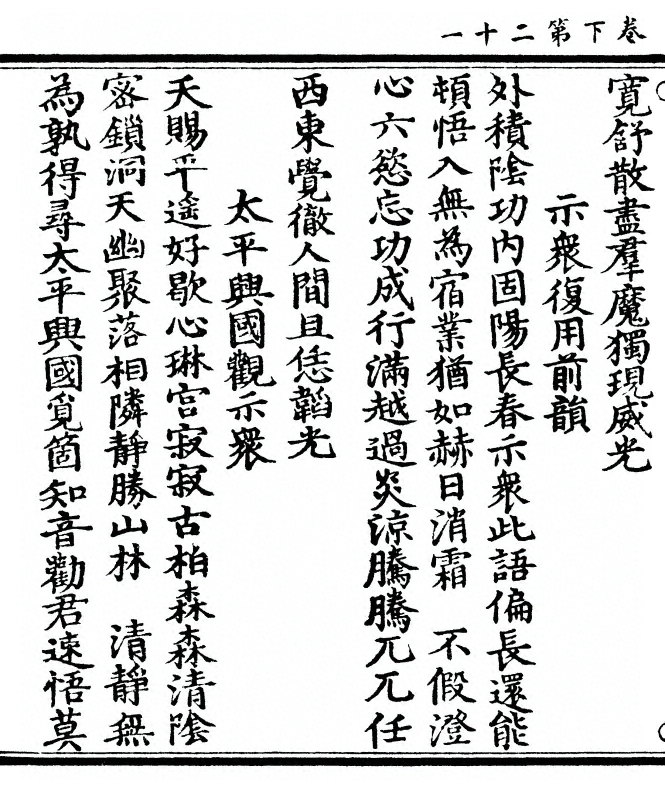 卷下第二十一
寬舒散盡羣魔獨現威光
示衆復用前韻
外積陰功内固陽長春示衆此語偏長還能
頓悟入無為宿業猶如赫日消霜　不假澄
心六慾忘功成行滿越過炎涼騰騰兀兀任
西東覺徹人間且恁韜光
太平興國觀示衆
天賜平遙好歇心琳宫寂寂古柏森森清陰
密鎖洞天幽聚落相隣靜勝山林　清靜無
為孰得尋太平興國覓箇知音勸君速悟莫